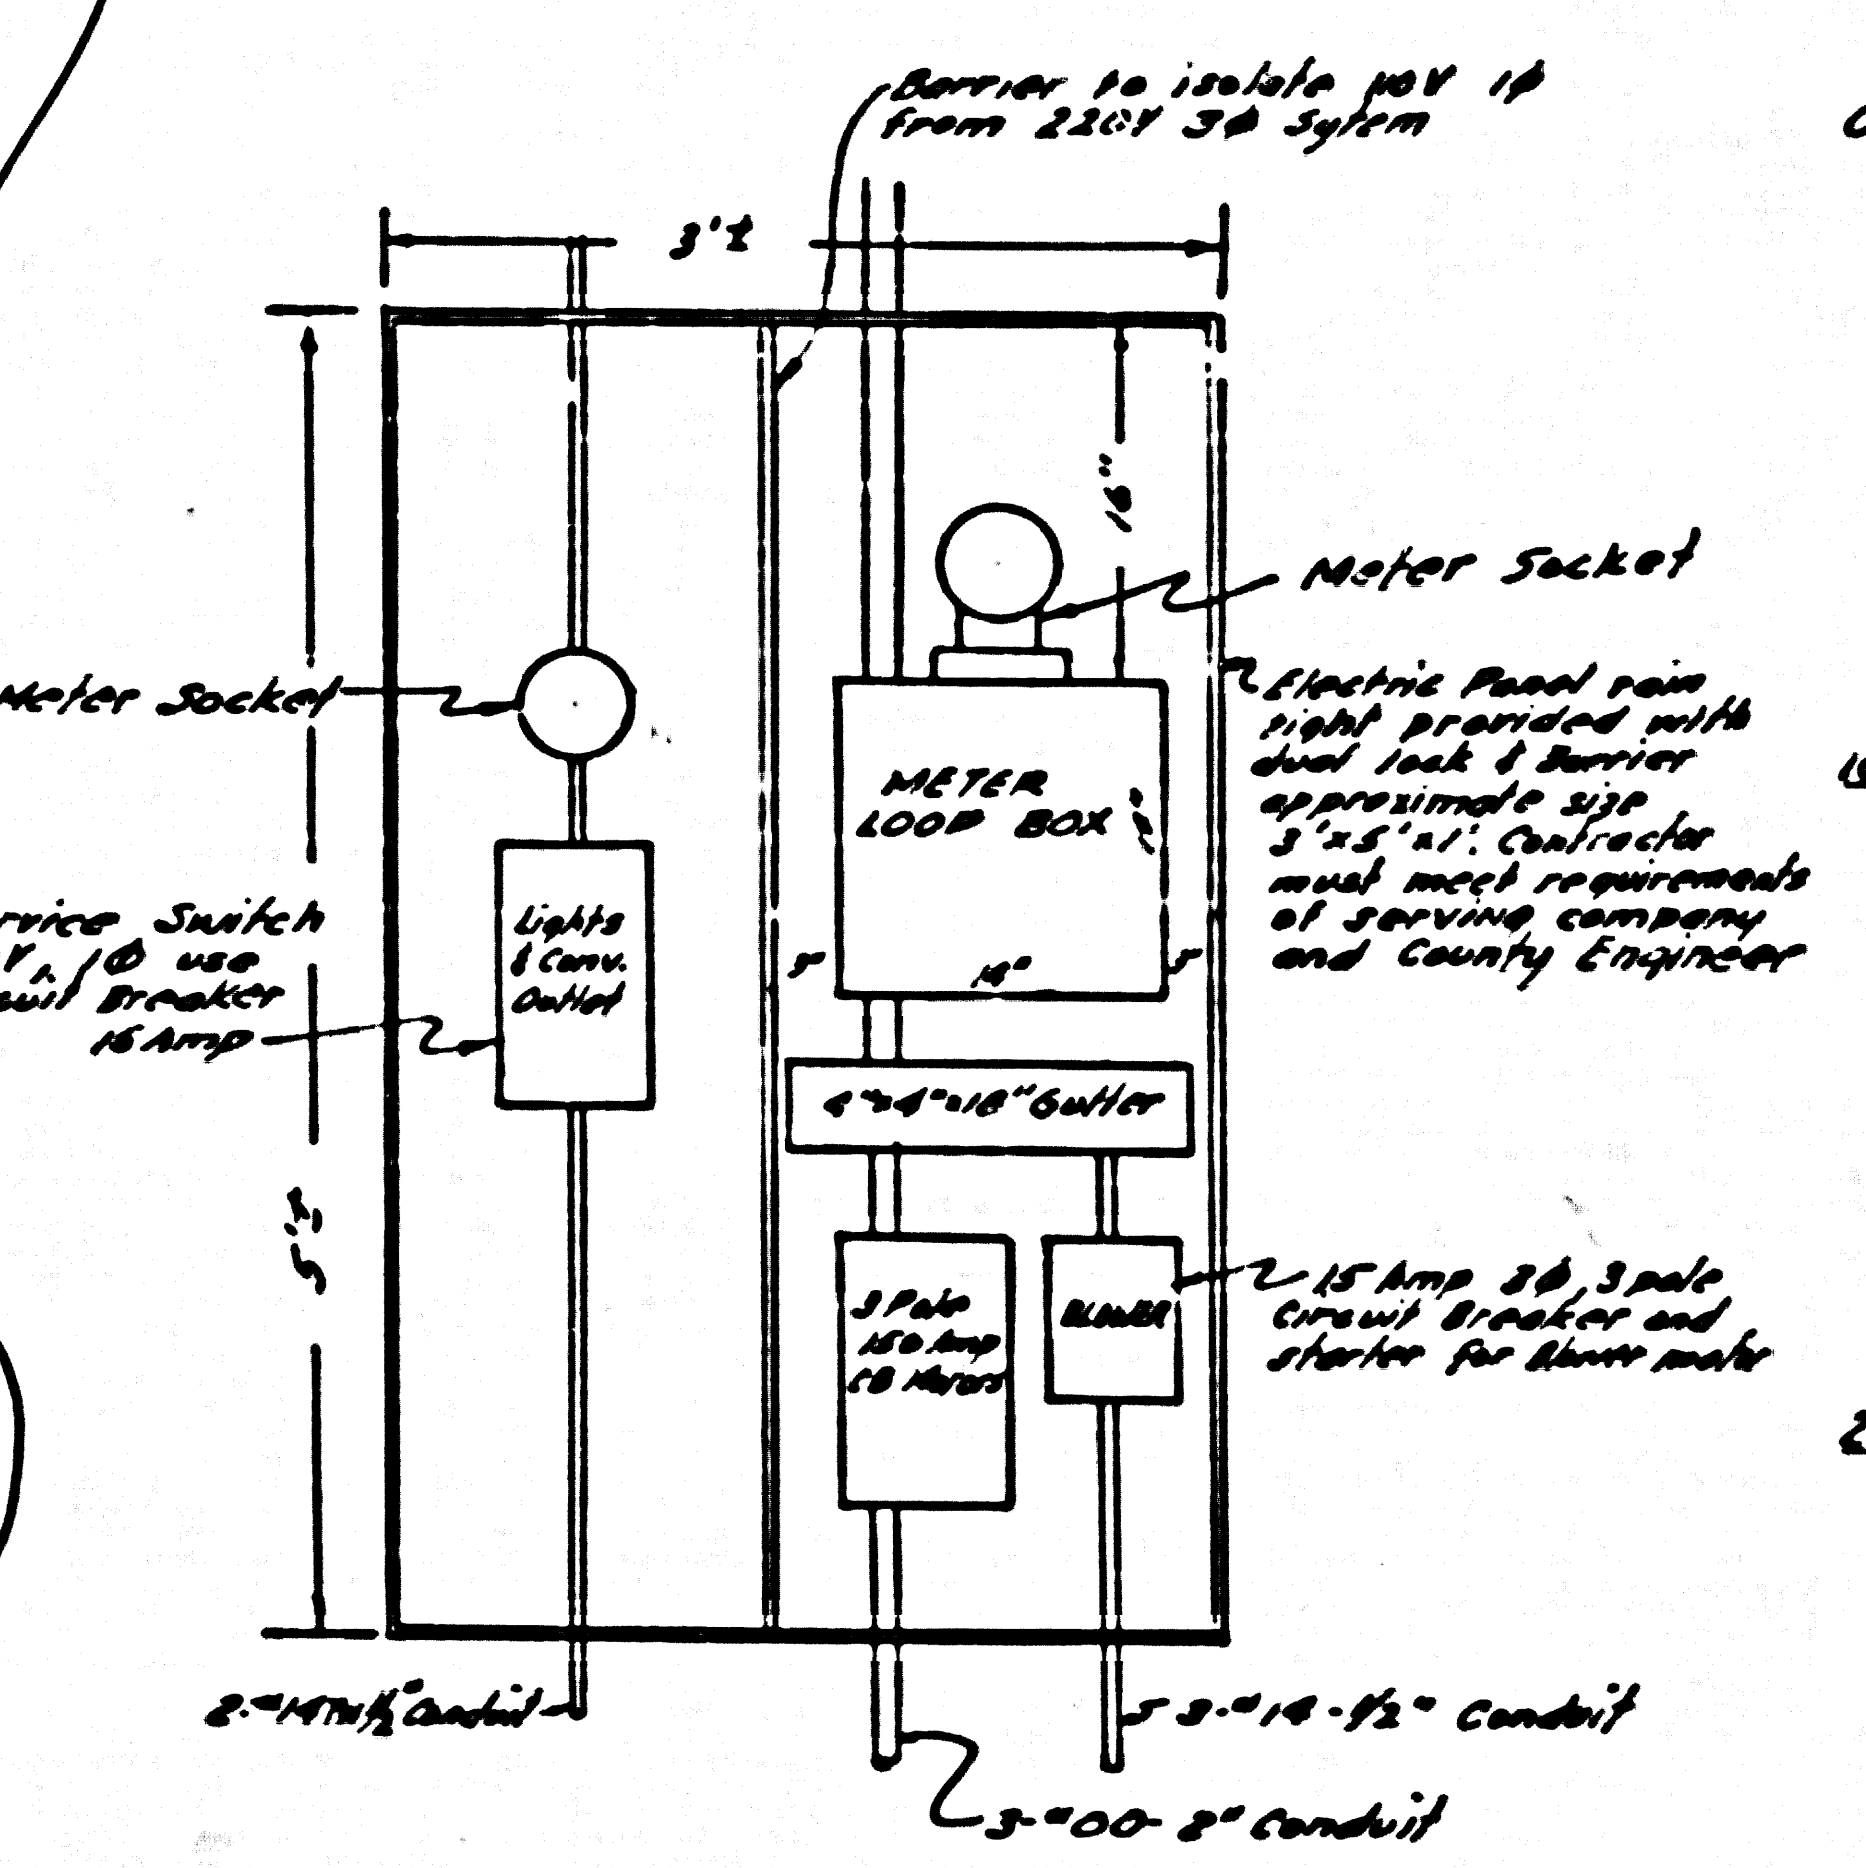 Barrier to isolate 110V 1ϕ
from 220V 3ϕ Sytem
3'±
16"
Meter Socket
Meter Socket
Electric Panel rain
tight provided with
dual lock & Barrier
approximate size
3'x5'x1'. Contractor
must meet requirements
of serving company
and County Engineer
METER
LOOP BOX
Lights
& Conv.
Outlet
Switch
1ϕ use
Breaker
15 Amp
5"
5"
14"
4"x4"x16" Gutter
5'±
3 Pole
150 Amp
CB
BLOWER
15 Amp 3ϕ, 3 pole
Circuit Breaker and
starter for Blower motor
2-#14 1/2" Conduit
3-#14-1/2" Conduit
3-#00-2" Conduit